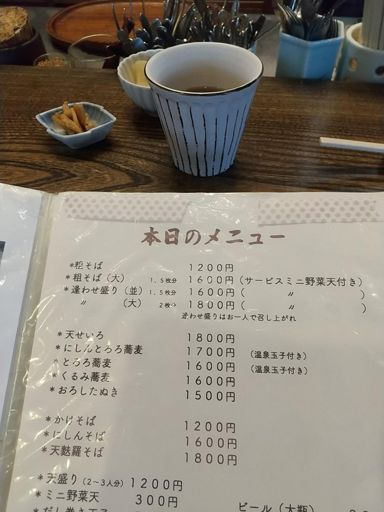 本日のメニュー
*粔そば 1200円
*粗そば(大) 1,5枚分 1600円(サービスミニ野菜天付き)
*逢わせ盛り(並) 1,5枚分 1600円( 〃 )
〃 (大) 2枚分 1800円( 〃 )
逢わせ盛りはお一人で召し上がれ
*天せいろ 1800円
*にしんとろろ蕎麦 1700円 (温泉玉子付き)
*とろろ蕎麦 1600円 (温泉玉子付き)
*くるみ蕎麦 1600円
*おろしたぬき 1500円
*かけそば 1200円
*にしんそば 1600円
*天麩羅そば 1800円
*天盛り(2〜3人分) 1200円
*ミニ野菜天 300円
ビール(大瓶)
*だし巻き玉子